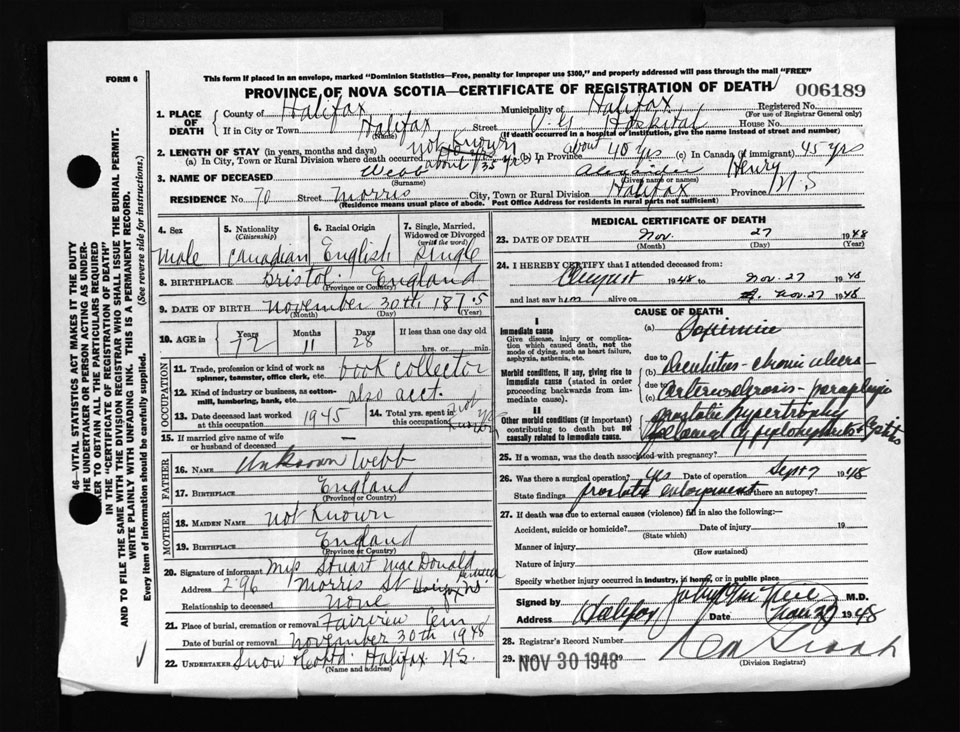 FORM 6
This form if placed in an envelope, marked "Dominion Statistics—Free, penalty for improper use $300," and properly addressed will pass through the mail "FREE"
PROVINCE OF NOVA SCOTIA—CERTIFICATE OF REGISTRATION OF DEATH 006189
1. PLACE OF DEATH County of Halifax Municipality of Halifax Registered No. (For use of Registrar General only)
If in City or Town Halifax (Name) Street V.G. Hospital House No.
(If death occurred in a hospital or institution, give the name instead of street and number)
2. LENGTH OF STAY (in years, months and days) not known
(a) In City, Town or Rural Division where death occurred about 35 yrs (b) In Province about 40 yrs (c) In Canada (if immigrant) 45 yrs
3. NAME OF DECEASED Webb (Surname) Henry (Given name or names)
RESIDENCE No. 70 Street Morris City, Town or Rural Division Halifax Province N.S
(Residence means usual place of abode. Post Office Address for residents in rural parts not sufficient)
4. Sex Male
5. Nationality (Citizenship) Canadian
6. Racial Origin English
7. Single, Married, Widowed or Divorced (write the word) Single
8. BIRTHPLACE Bristol England (Province or Country)
9. DATE OF BIRTH November 30th 1875 (Month) (Day) (Year)
10. AGE in Years 72 Months 11 Days 28 If less than one day old hrs. or min.
OCCUPATION
11. Trade, profession or kind of work as spinner, teamster, office clerk, etc. book collector
12. Kind of industry or business, as cotton-mill, lumbering, bank, etc. also acct.
13. Date deceased last worked at this occupation 1945 14. Total yrs. spent in this occupation not
15. If married give name of wife or husband of deceased —
FATHER
16. NAME Unknown Webb
17. BIRTHPLACE England (Province or Country)
MOTHER
18. MAIDEN NAME Not Known
19. BIRTHPLACE England (Province or Country)
20. Signature of informant Mrs Stuart MacDonald
Address 296 Morris St Halifax NS
Relationship to deceased None
21. Place of burial, cremation or removal Fairview Cem
Date of burial or removal November 30th 1948
22. UNDERTAKER Snow & Co Ltd. Halifax N.S. (Name and address)
MEDICAL CERTIFICATE OF DEATH
23. DATE OF DEATH Nov. 27 1948 (Month) (Day) (Year)
24. I HEREBY CERTIFY that I attended deceased from:
August 1948 to Nov. 27 1948
and last saw him alive on Nov. 27 1948
CAUSE OF DEATH
I
Immediate cause
Give disease, injury or complication which caused death, not the mode of dying, such as heart failure, asphyxia, asthenia, etc.
(a) Toxemia
Morbid conditions, if any, giving rise to immediate cause (stated in order proceeding backwards from immediate).
due to (b) Decubitus - chronic ulcers
due to (c) Arteriosclerosis - paraplegia
II
Other morbid conditions (if important) contributing to death but not causally related to immediate cause.
prostatic hypertrophy
followed by pyelonephritis & Cystitis
25. If a woman, was the death associated with pregnancy?
26. Was there a surgical operation? yes Date of operation Sept 7 1948
State findings prostatic enlargement Was there an autopsy?
27. If death was due to external causes (violence) fill in also the following:—
Accident, suicide or homicide? (State which) Date of injury 19
Manner of injury (How sustained)
Nature of injury
Specify whether injury occurred in industry, in home, or in public place
Signed by M.D.
Address Halifax Date Nov 29 1948
28. Registrar's Record Number
29. NOV 30 1948 19 (Division Registrar)
46—VITAL STATISTICS ACT MAKES IT THE DUTY
AND TO FILE THE SAME WITH THE DIVISION REGISTRAR WHO SHALL ISSUE THE BURIAL PERMIT.
WRITE PLAINLY WITH UNFADING INK. THIS IS A PERMANENT RECORD.
Every item of information should be carefully supplied. (See reverse side for instructions.)